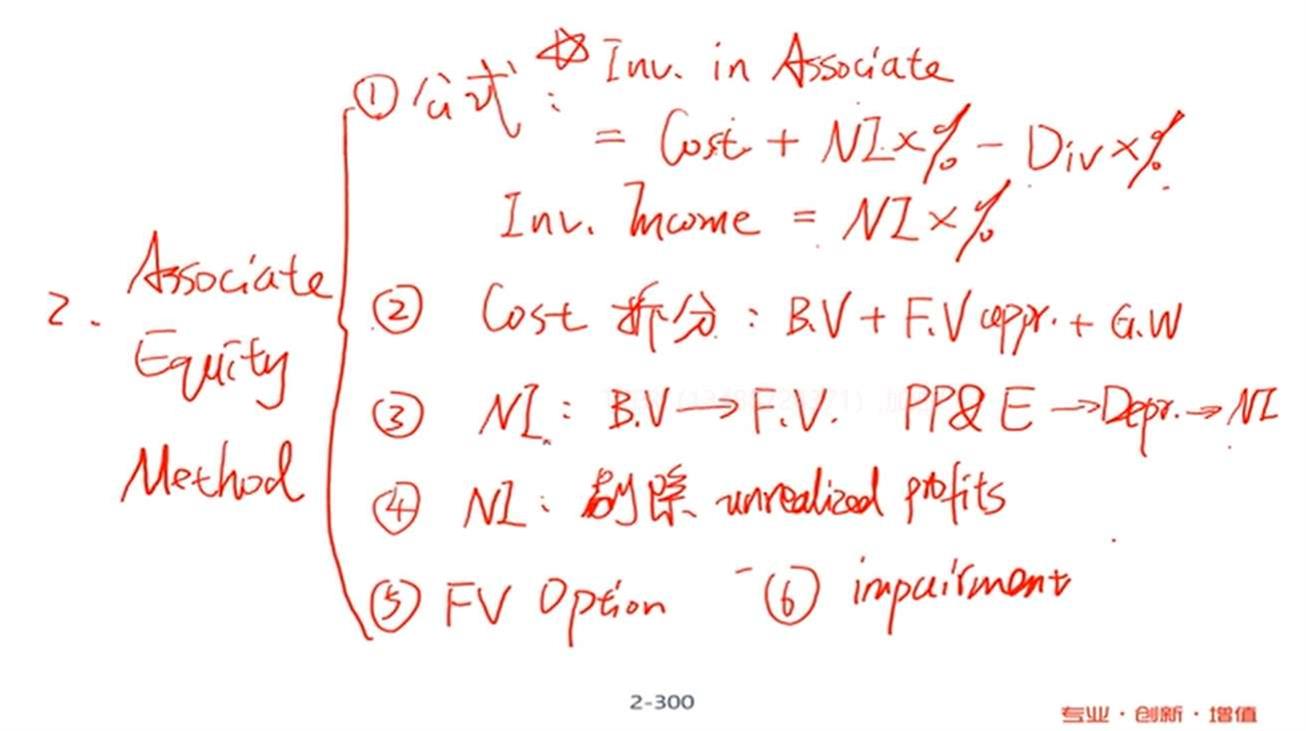 ① 公式: ☆ Inv. in Associate
= Cost + NI×% - Div×%
Inv. Income = NI×%
2. Associate Equity Method
② Cost 拆分: B.V + F.V appr. + G.W
③ NI: B.V → F.V. PP&E → Depr. → NI
④ NI: 剔除 unrealized profits
⑤ FV Option - ⑥ impairment
2-300
专业·创新·增值